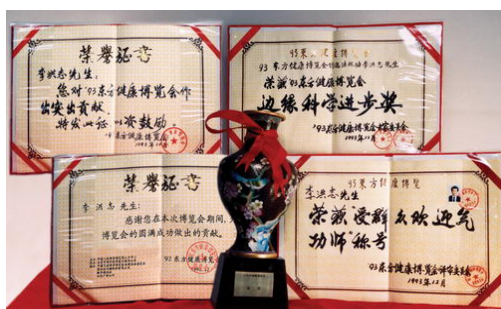 荣誉证书
李洪志先生:
您对'93东方健康博览会作
出突出贡献,
特发此证 以资鼓励。
'93东方健康博览会
1993年12月
93东方健康博览会
李洪志先生
荣获'93东方健康博览会
边缘科学进步奖
'93东方健康博览会
1993年12月
荣誉证书
李洪志先生:
感谢您在本次博览会期间,
博览会的圆满成功做出的贡献。
'93东方健康博览
93东方健康博览
李洪志先生
荣获受群众欢迎气
功师"称号
'93东方健康博览会评审委员会
1993年12月